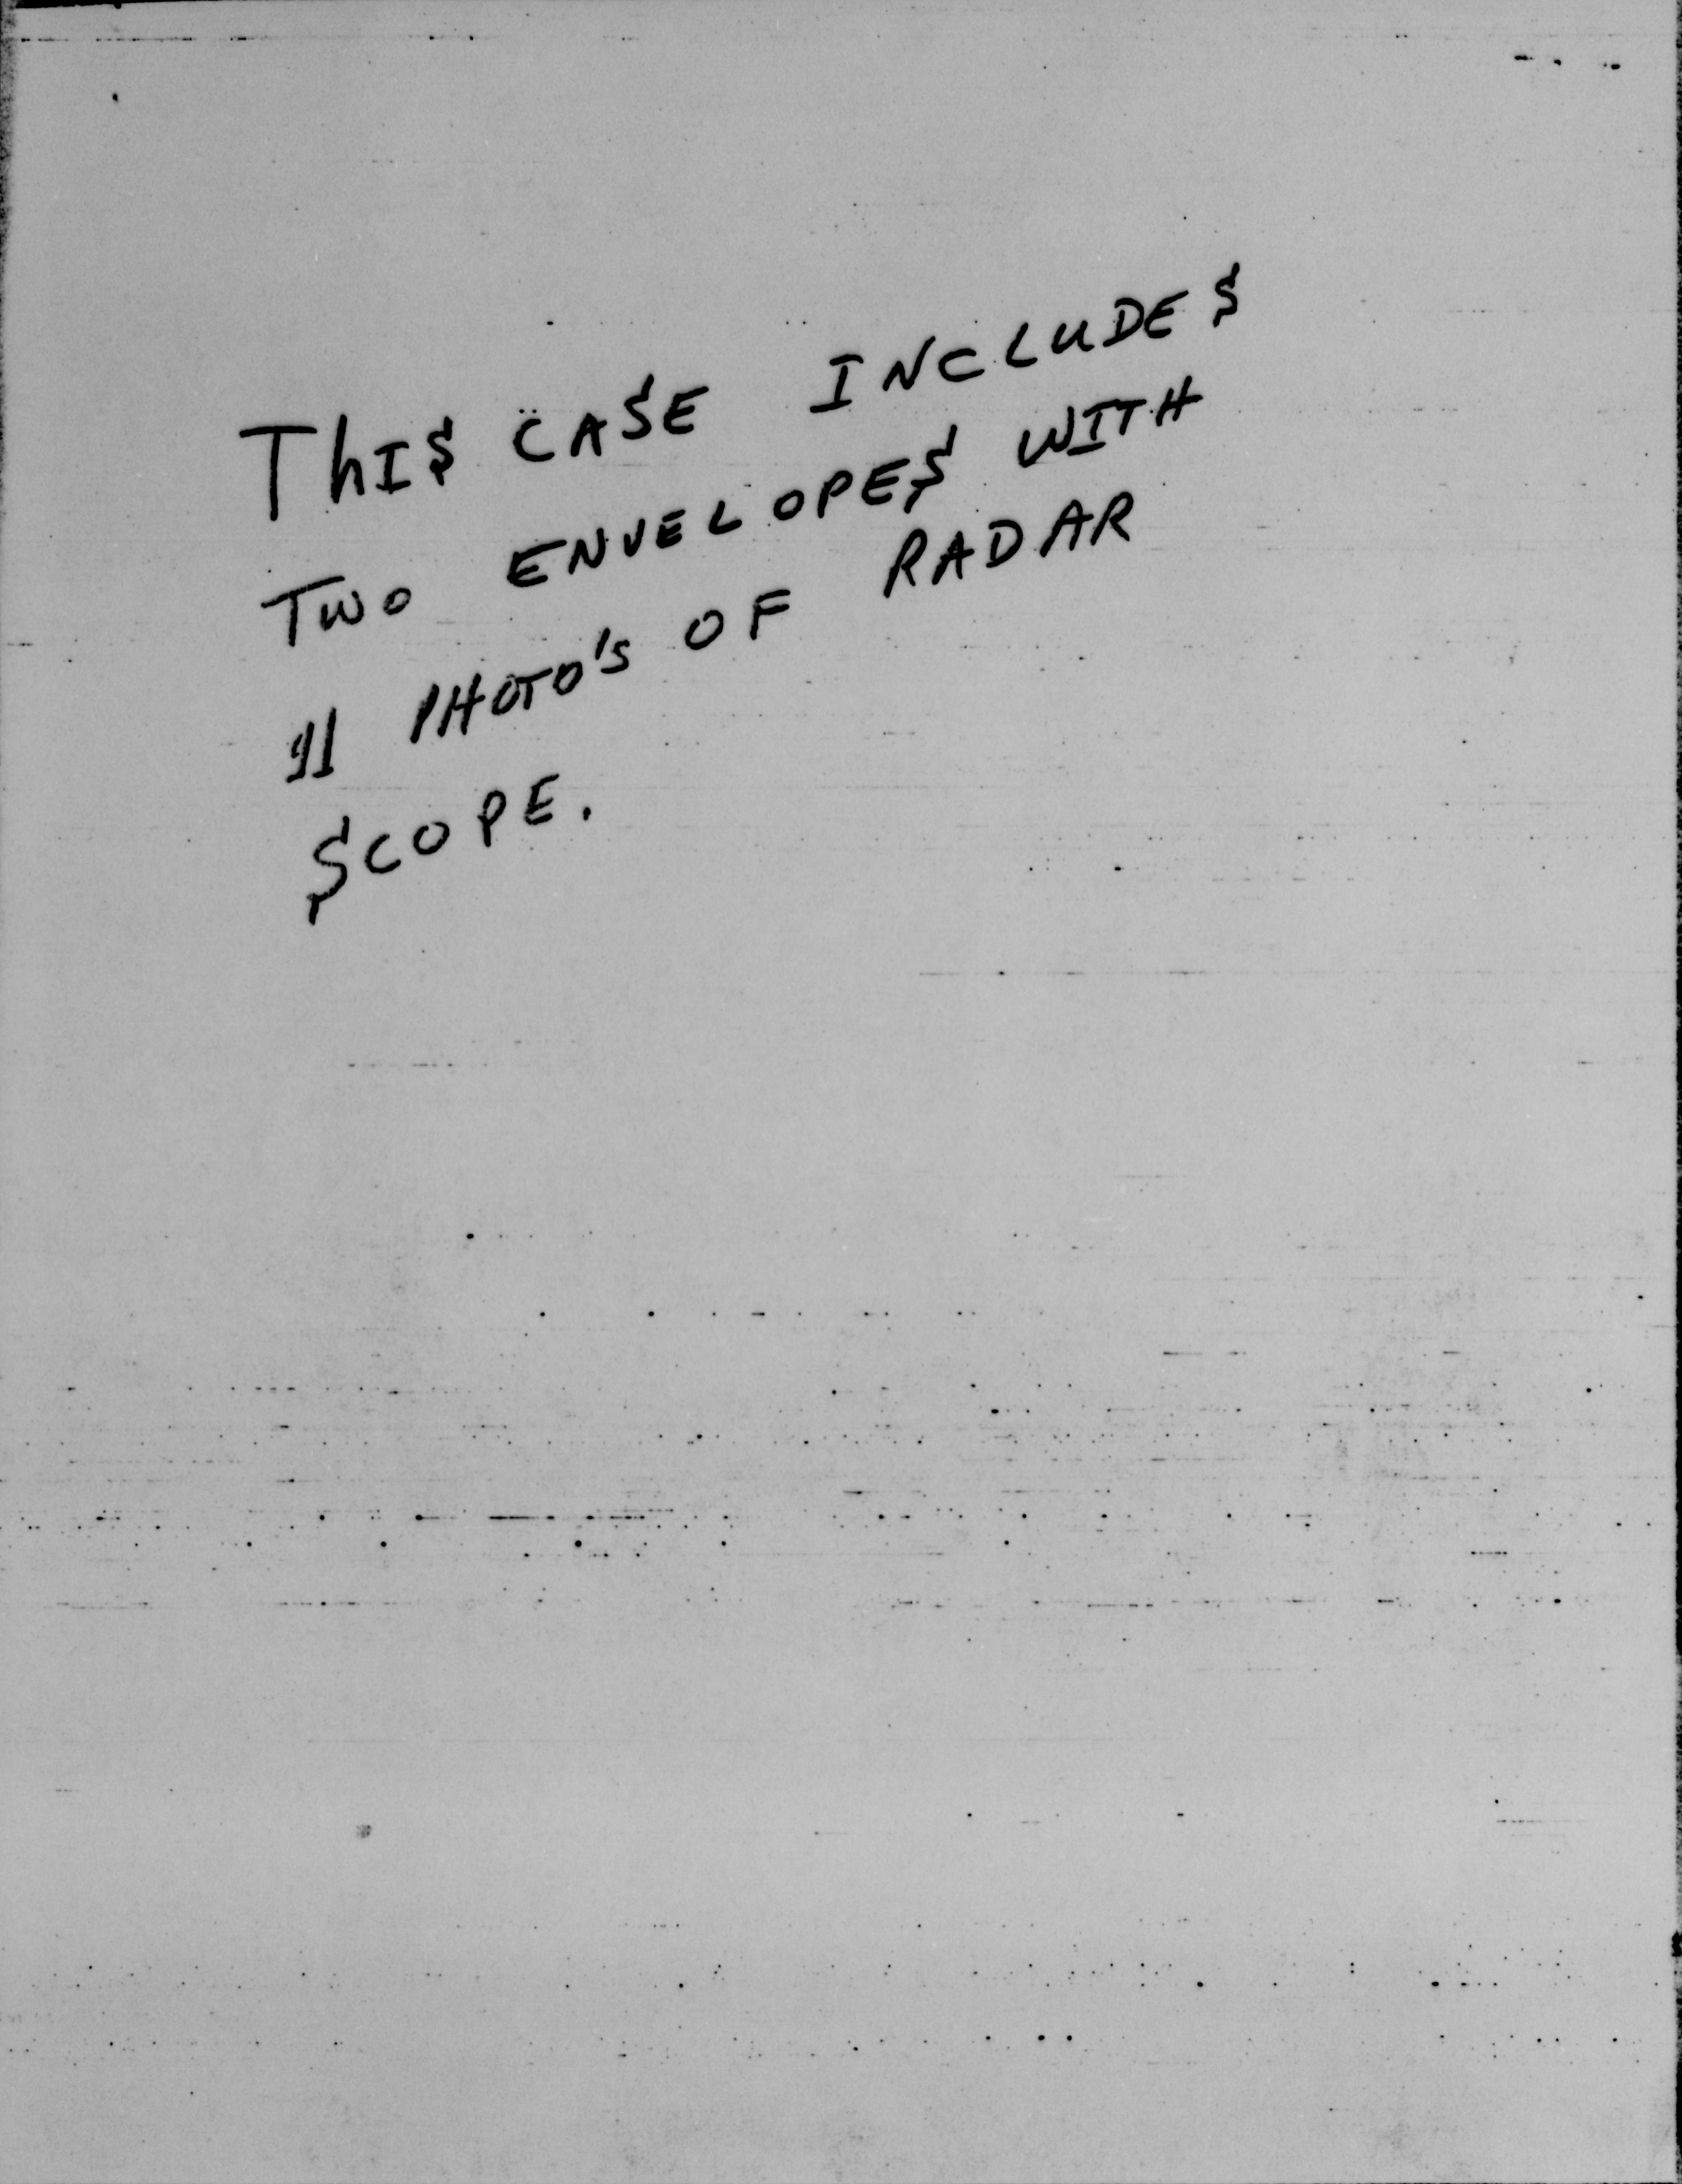 THIS CASE INCLUDES
TWO ENVELOPES WITH
11 PHOTO'S OF RADAR
SCOPE.